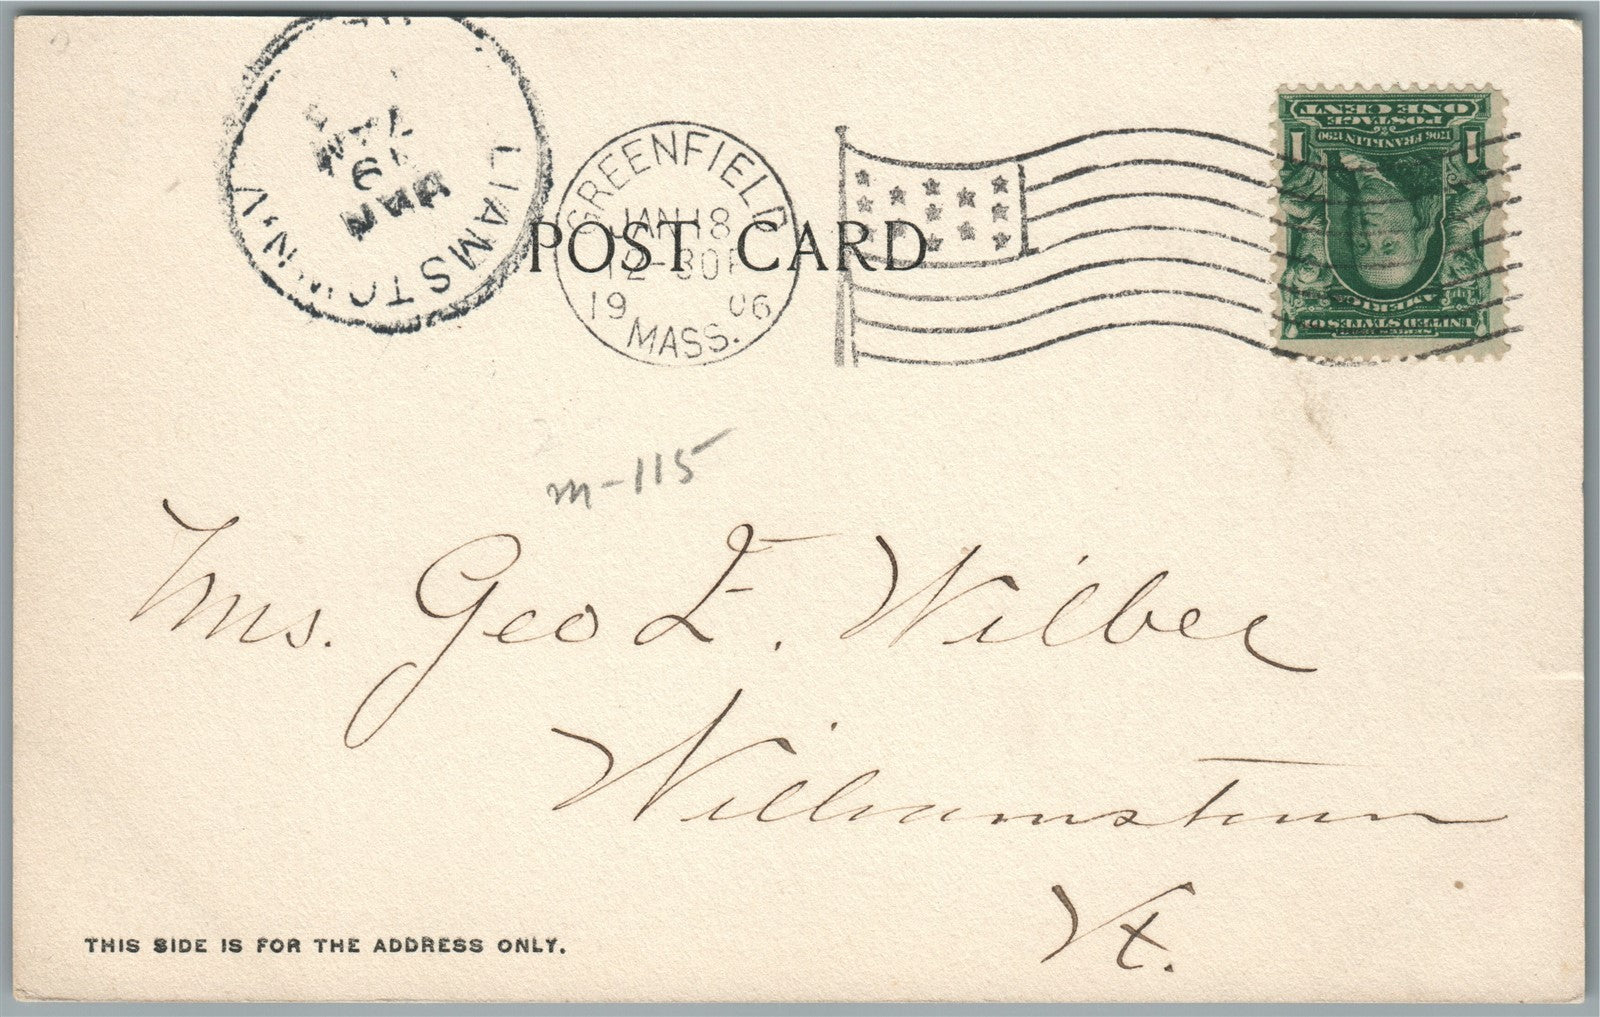 LIAMSTOWN, V
JAN
19
7 AM
GREENFIELD
JAN 18
12-30P
19 06
MASS.
POST CARD
ONE CENT
POSTAGE
1706 FRANKLIN 1790
1 1
UNITED STATES OF
AMERICA
m-115
Mrs. Geo E. Wilber
Williamstown
Vt.
THIS SIDE IS FOR THE ADDRESS ONLY.